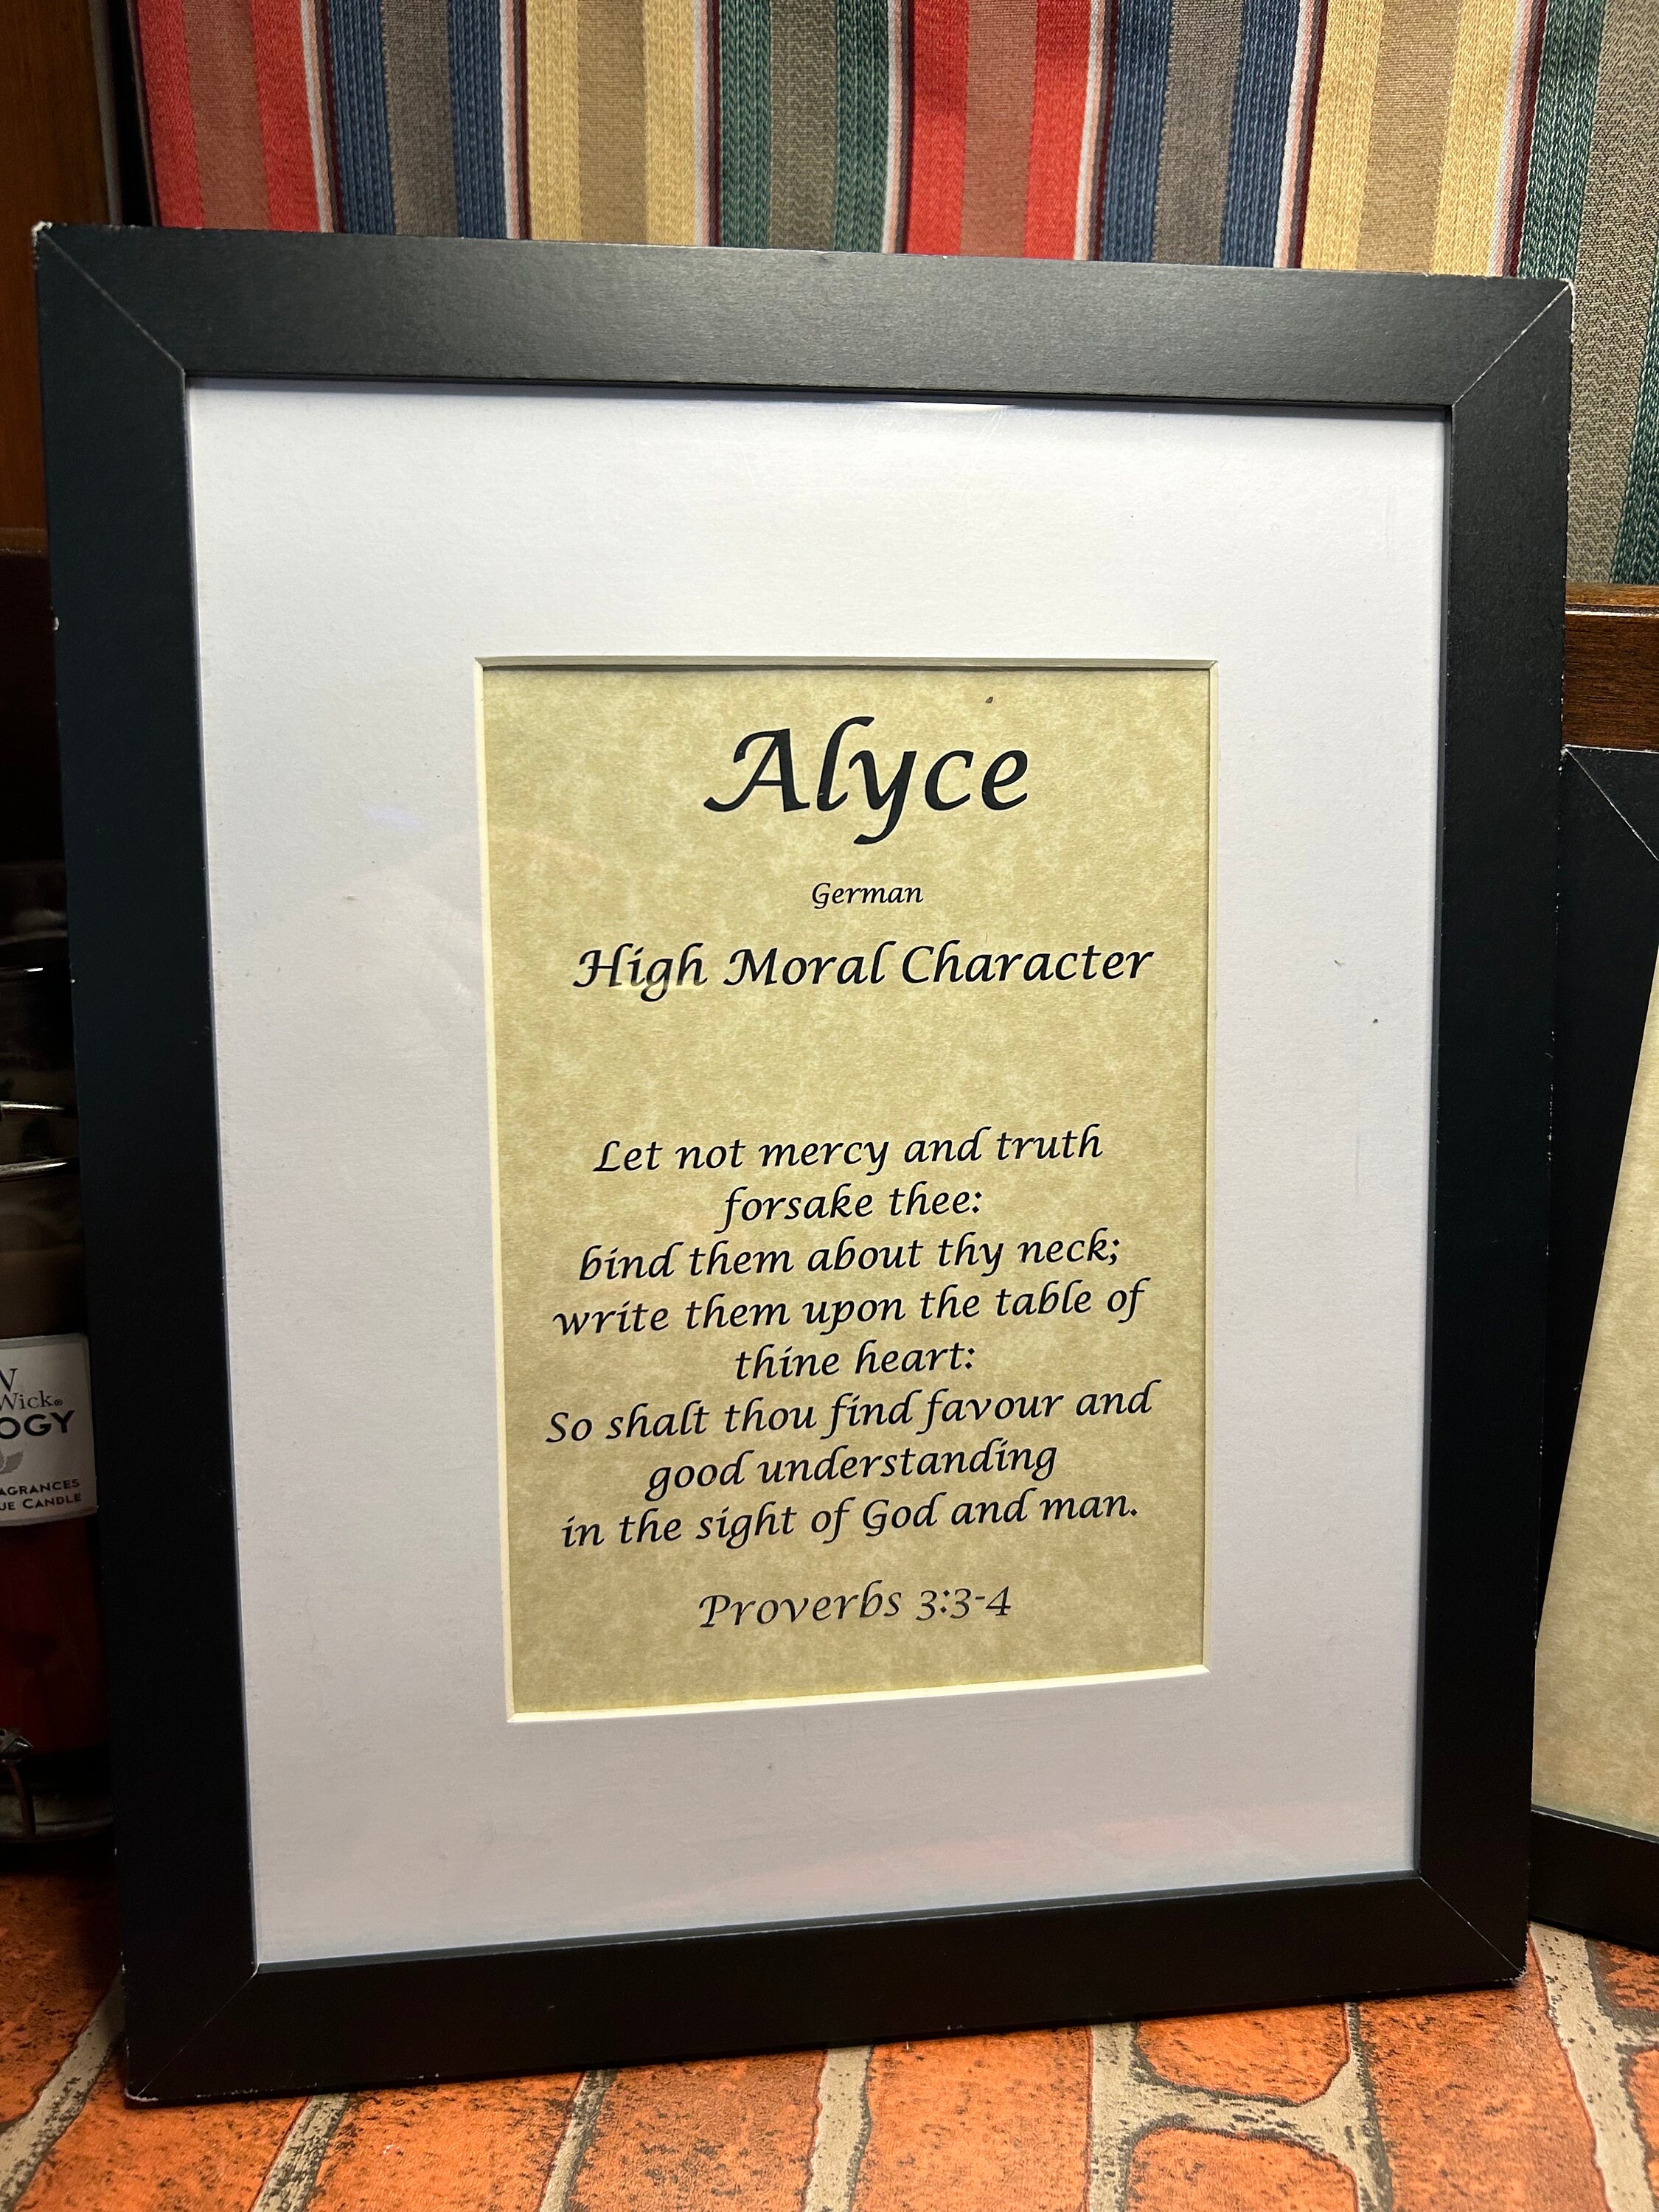 Alyce
German
High Moral Character
Let not mercy and truth
forsake thee:
bind them about thy neck;
write them upon the table of
thine heart:
So shalt thou find favour and
good understanding
in the sight of God and man.
Proverbs 3:3-4
Wick®
OGY
AGRANCES
UE CANDLE